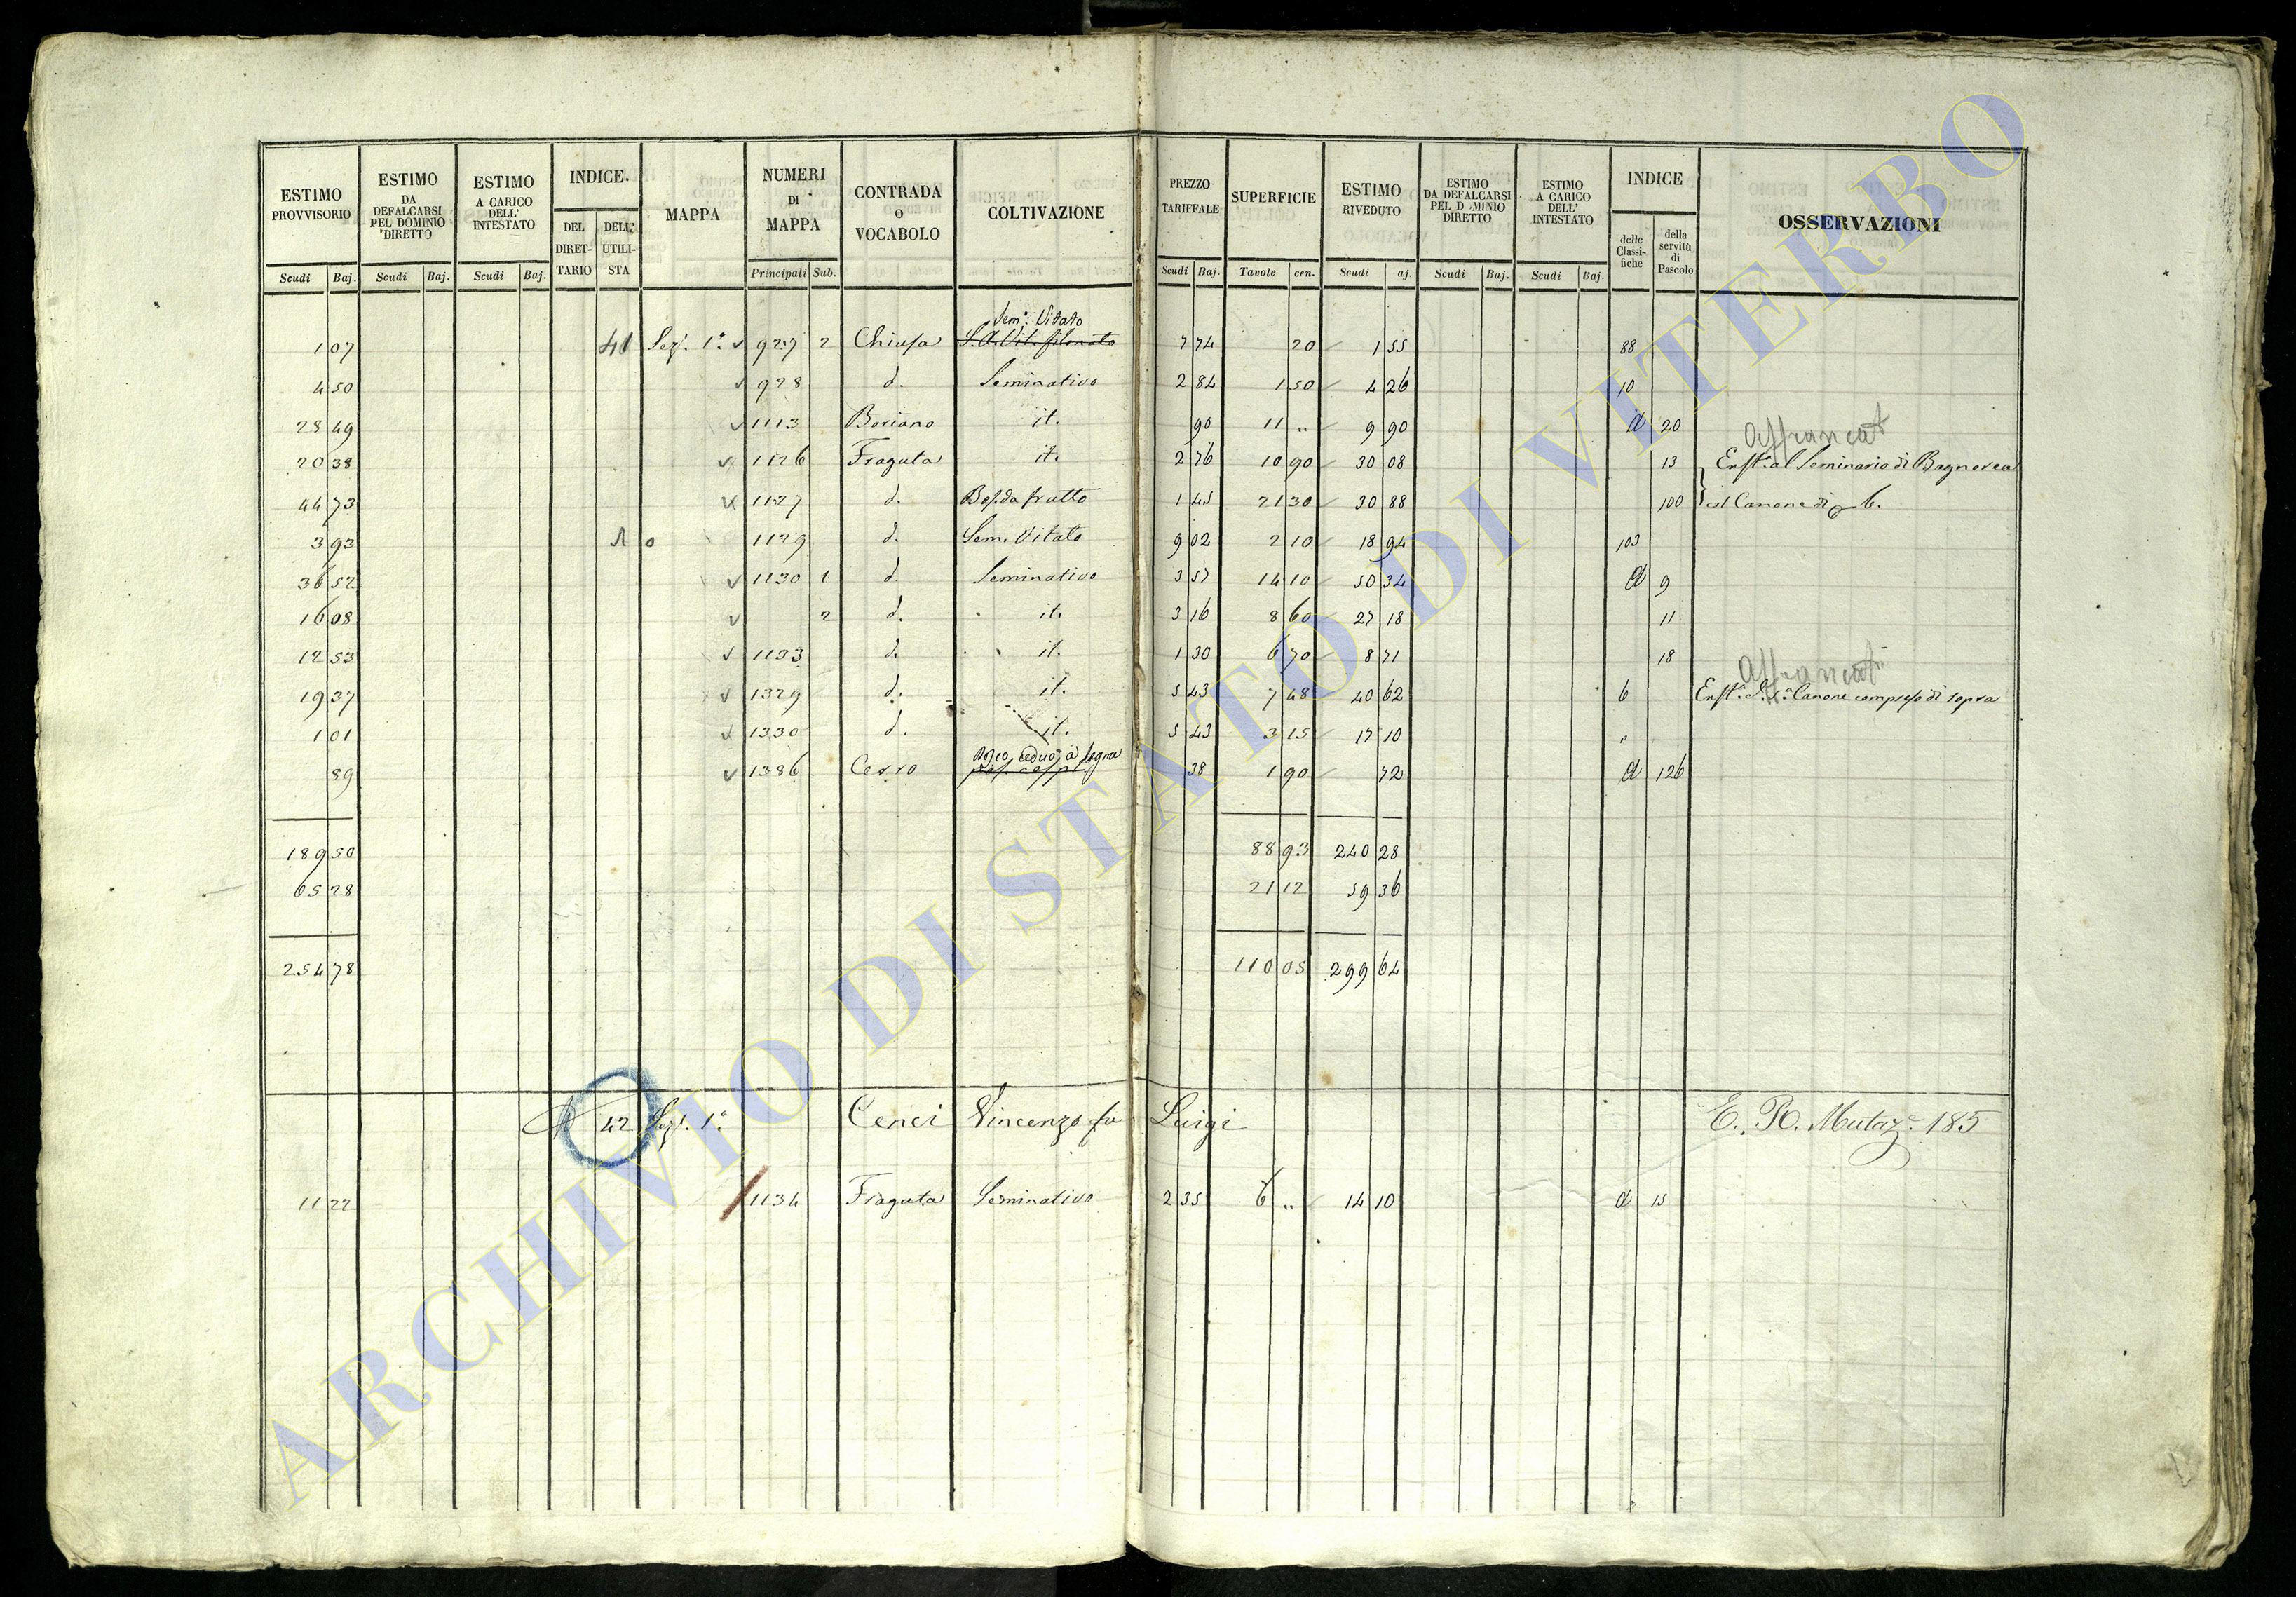 ESTIMO PROVVISORIO | ESTIMO DA DEFALCARSI PEL DOMINIO DIRETTO | ESTIMO A CARICO DELL' INTESTATO | INDICE. | MAPPA | NUMERI DI MAPPA | CONTRADA O VOCABOLO | COLTIVAZIONE | PREZZO TARIFFALE | SUPERFICIE | ESTIMO RIVEDUTO | ESTIMO DA DEFALCARSI PEL D MINIO DIRETTO | ESTIMO A CARICO DELL' INTESTATO | INDICE | OSSERVAZIONI
DEL DIRETTARIO | DELL' UTILISTA | delle Classifiche | della servitù di Pascolo
Scudi | Baj. | Scudi | Baj. | Scudi | Baj. | Principali | Sub. | Scudi | Baj. | Tavole | cen. | Scudi | aj. | Scudi | Baj. | Scudi | Baj.
Sem: Vitato
1 07 | 41 | Sez. 1a | 927 | 2 | Chiusa | 7 74 | 20 | 1 55 | 88
4 50 | 928 | d. | Seminativo | 2 84 | 1 50 | 4 26 | 10
28 49 | 1113 | Boriano | it. | 90 | 11 " | 9 90 | d | 20 | Affrancat
20 38 | 1126 | Fraguta | it. | 2 76 | 10 90 | 30 08 | 13 | Enft. al Seminario di Bagnorea
44 73 | 1127 | d. | Bos. da frutto | 1 45 | 21 30 | 30 88 | 100 | col Canone di 6.
3 93 | 1129 | d. | Sem. Vitato | 9 02 | 2 10 | 18 94 | 103
36 52 | 1130 | 1 | d. | Seminativo | 3 57 | 14 10 | 50 34 | d | 9
16 08 | 2 | d. | it. | 3 16 | 8 60 | 27 18 | 11
12 53 | 1133 | d. | it. | 1 30 | 6 70 | 8 71 | 18 | Affrancat
19 37 | 1329 | d. | it. | 5 43 | 7 48 | 40 62 | 6 | Canone compreso di sopra
1 01 | 1330 | d. | it. | 5 43 | 3 15 | 17 10 | "
89 | 1386 | Cerro | Bosco ceduo a legna | 38 | 1 90 | 72 | d | 126
189 50 | 88 93 | 240 28
65 28 | 21 12 | 59 36
254 78 | 110 05 | 299 64
42 | Sez. 1a | Cenci Vincenzo fu Luigi | E. R. Mutaz. 185
11 22 | 1134 | Fraguta | Seminativo | 2 35 | 6 " | 14 10 | d | 15
ARCHIVIO DI STATO DI VITERBO